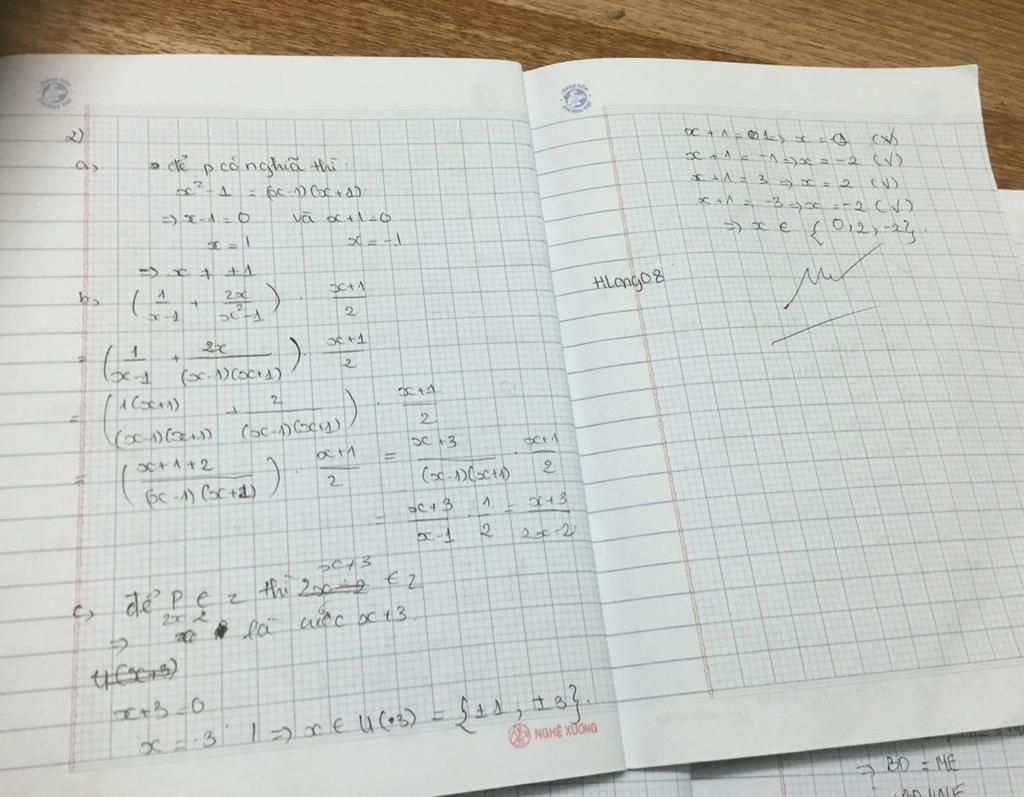 2)
a, để p có nghĩa thì:
x² - 1 = (x-1)(x+1)
=> x-1 = 0 và x+1 = 0
x = 1 x = -1
=> x ≠ ±1
b, (1/(x-1) + 2x/(x²-1)) . (x+1)/2
= (1/(x-1) + 2x/((x-1)(x+1))) . (x+1)/2
= (1(x+1)/((x-1)(x+1)) + 2/((x-1)(x+1))) . (x+1)/2
= ((x+1+2)/((x-1)(x+1))) . (x+1)/2 = (x+3)/((x-1)(x+1)) . (x+1)/2
= (x+3)/(x-1) . 1/2 = (x+3)/(2x-2)
c, để P ∈ Z thì (x+3)/(2x-2) ∈ Z
=> 2x 2 là ước x+3
Ư(x+3)
x+3 = 0
x = -3 => x ∈ Ư(+3) = {±1, ±3}.
NGHỆ XƯƠNG
x+1 = 1 => x = 0 (V)
x+1 = -1 => x = -2 (V)
x+1 = 3 => x = 2 (V)
x+1 = -3 => x = -2 (V)
=> x ∈ {0, 2, -2}.
HLong08
=> BD = ME